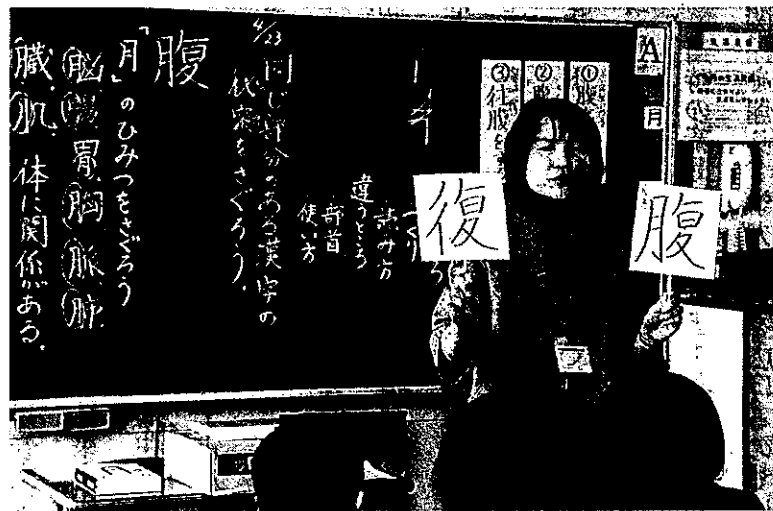 A
月
①腹
②腹
③往腹を
復
腹
読み方
違うところ
部首
使い方
4/23 同じ部分のある漢字の
秘密をさぐろう。
腹
「月」のひみつをさぐろう
脳 腸 胃 胸 脈 肺
臓、肌、体に関係がある。